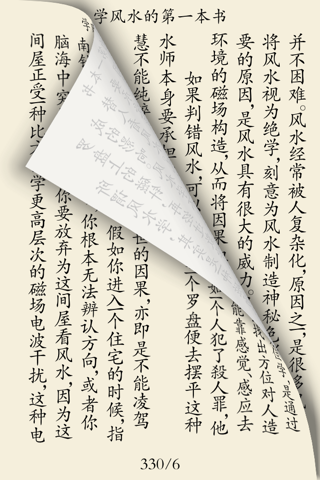 学风水的第一本书
并不困难。风水经常被人复杂化，原因之一，是很多
学，是通过
将风水视为绝学，刻意为风水制造神秘色
找出方位对人造
要的原因，是风水具有很大的威力。
能靠感觉、感应去
环境的磁场构造，从而将因果
一个人犯了殺人罪，他
如果判错风水，可以
一个罗盘便去摆平这种
水师本身要承
慧不能纯
世的因果，亦即是不能凌驾
假如你进入一个住宅的时候，指
南
你根本无法辨认方向，或者你
脑海中突
你要放弃为这间屋看风水，因为这
间屋正受一种比
学更高层次的磁场电波干扰，这种电
330/6